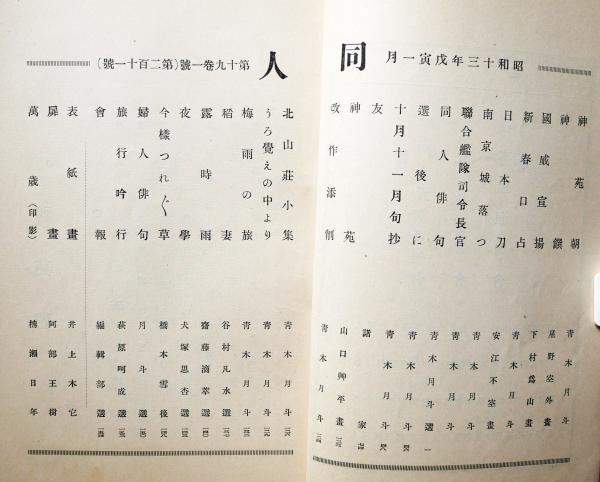 昭和十三年戊寅一月
同人
第十九卷一號(第二百十一號)
神苑朝 青木月斗
神饌 星野室外畫
國威宣揚 下村爲山畫
新春口占 青木月斗
日本刀 安江不空畫
南京城落つ 青木月斗
聯合艦隊司令長官 青木月斗
同人俳句 青木月斗選
選後に 青木月斗
十月十一月句抄 青木月斗
友 諸家
神苑 山口艸平畫
改作添削 青木月斗
北山莊小集 青木月斗
うろ覺えの中より 青木月斗
梅雨の旅 青木月斗
稻妻 谷村凡水選
露時雨 齋藤滴萃選
夜學 犬塚思杏選
今樣つれ〴〵草 橋本雪後
婦人俳句 月斗選
旅行吟行 萩原呵成選
會報 編輯部選
表紙畫 井上木它
扉畫 阿部王樹
萬歲(印影) 楠瀨日年